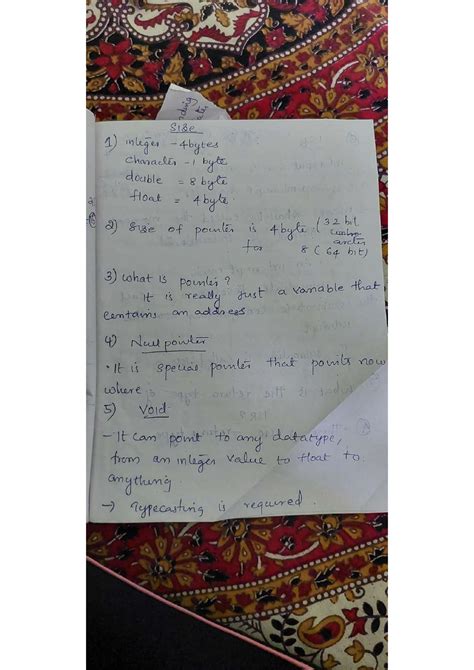 Size
1) integer - 4 bytes
character - 1 byte
double = 8 byte
float = 4 byte
2) Size of pointer is 4 byte (32 bit
for 8 (64 bit)
3) What is pointer?
It is really just a variable that
contains an address
4) Null pointer
• It is special pointer that points now
where
5) Void
- It can point to any datatype,
from an integer value to float to
anything.
→ Typecasting is required.